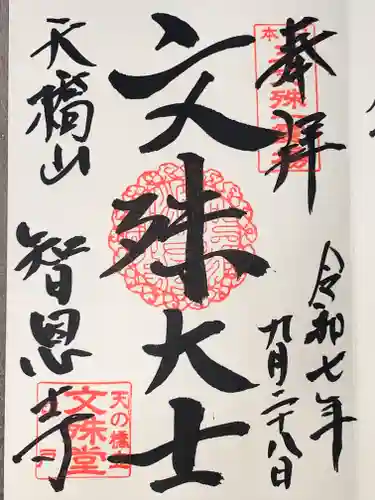 奉拝
令和七年
九月二十八日
文殊大士
天橋山
智恩寺
天の橋立
文殊堂